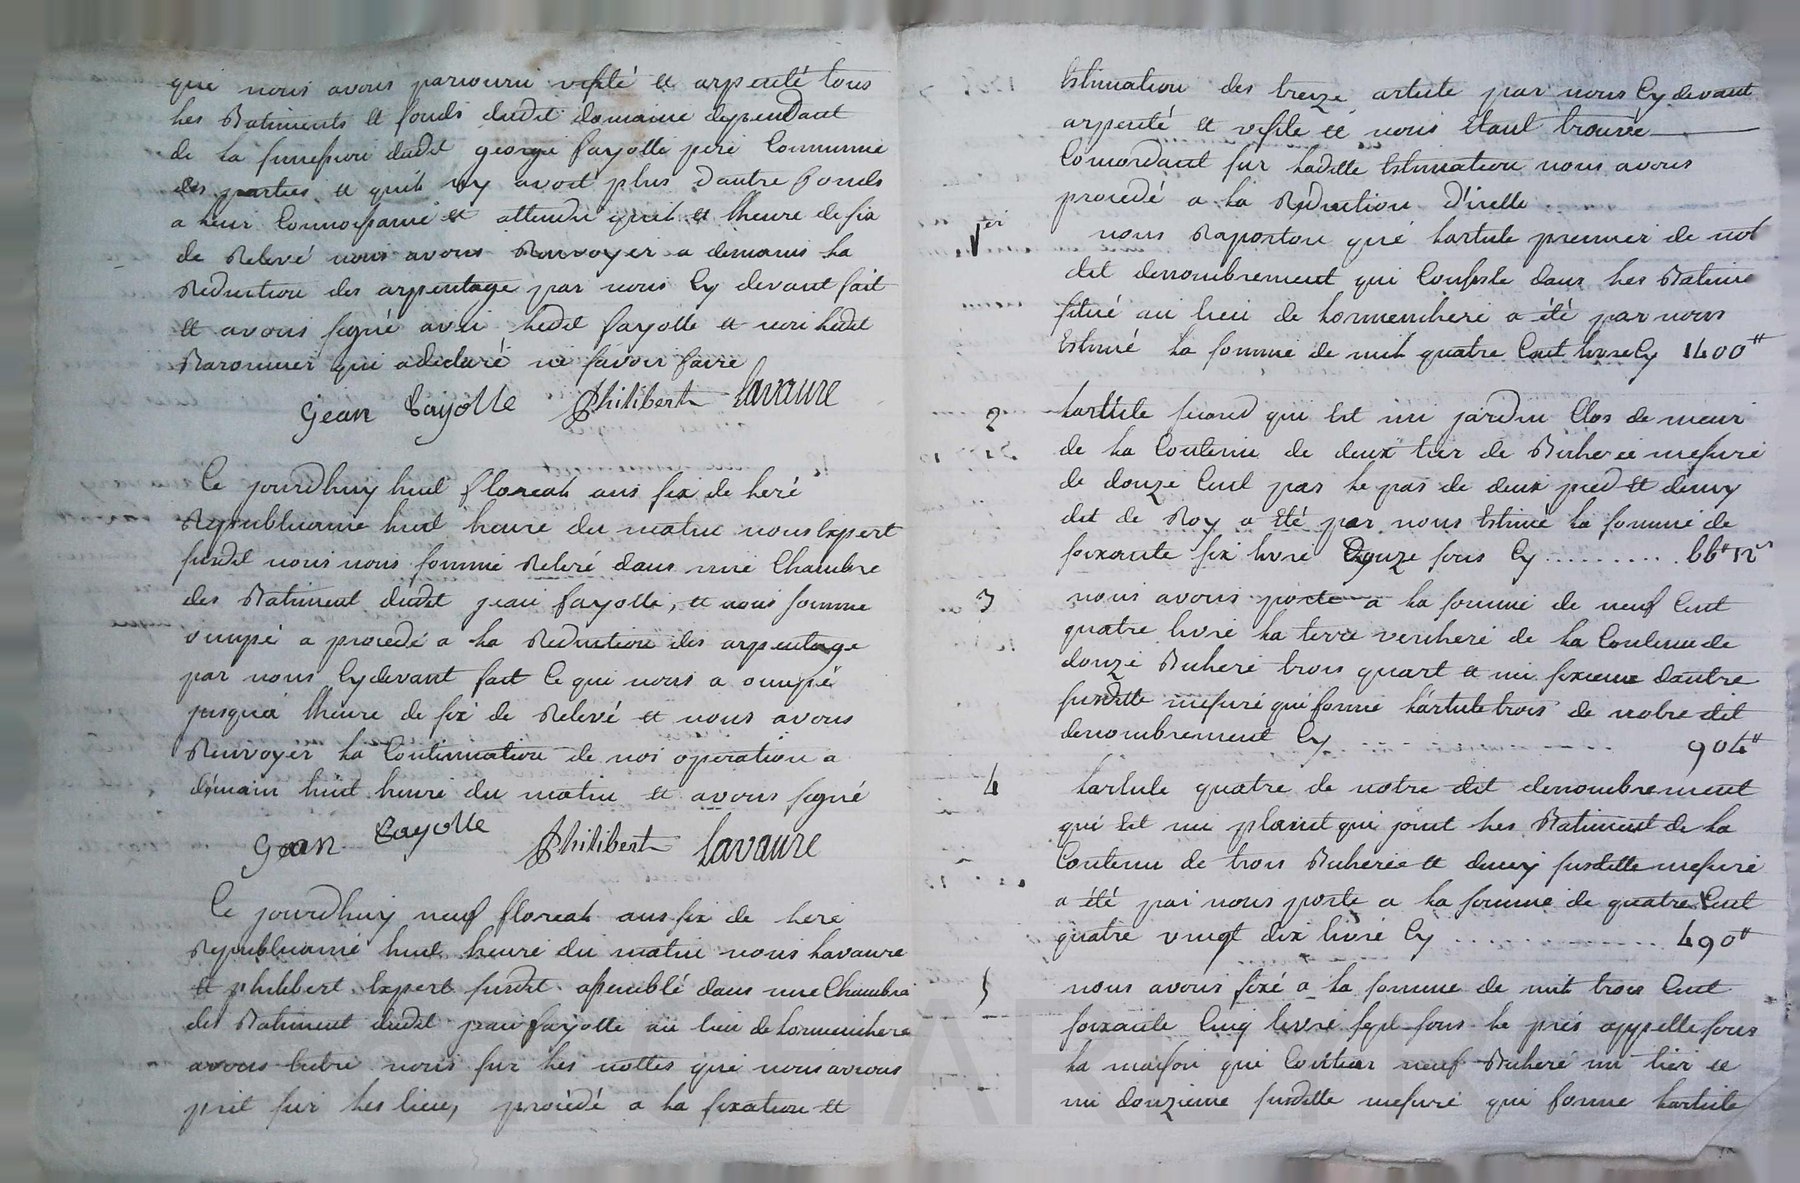 que nous avons parcouru visité et arpenté tous
les Batiments et fonds dudit domaine dependant
de la succession dudit george fayolle pere Commune
des parties et quil ny avoit plus dautre fonds
a leur Connoissance et attendu quil et lheure de six
de Relevé nous avons Renvoyer a demains la
Reduction des arpentage par nous Cy devant fait
et avons signé avec ledit fayolle et non ledit
Baronnier qui adeclaré ne savoir faire
jean fayolle Philibert lavaure
Ce jourdhuy huit floreal ans six de leré
Republicaine huit heure du matin nous Expert
susdit nous nous somme Relevé dans une Chambre
des Batiment dudit jean fayolle, et nous somme
ocuppé a procedé a la Reduction des arpentage
par nous Cydevant fait Ce qui nous a ocuppé
jusqua lheure de six de Relevé et nous avons
Renvoyer la Continuation de nos operation a
demain huit heure du matin et avons signé
jean fayolle Philibert lavaure
Ce jourdhuy neuf floreal ans six de leré
Republicaine huit heure du matin nous lavaure
et philibert Expert susdit assemblé dans une Chambre
des Batiment dudit jean fayolle au lieu de lormenchere
avons Entre nous sur les nottes que nous avons
prit sur les lieu, procédé a la fixation et
Estimation des treize article par nous Cy devant
arpenté et visite et nous Etant trouvée
Concordant sur laditte Estimation nous avons
procedé a la Réduction D'icelle
1er nous Raporton que larticle premier de not
dit denombrement qui Consiste dans les Batime
situé au lieu de lormenchere a été par nous
Estimé la somme de mil quatre Cent livre Cy 1400"
2 larticle second qui Est un jardin Clos de meur
de la Contenu de deux tier de Bicherée mesure
de douze Cent pas le pas de deux pied et demy
dit de Roy a été par nous Estimé la somme de
soixante six livre Douze sous Cy ......... 66" 12s
3 nous avons porté a la somme de neuf Cent
quatre livre la terre verchere de la Contenu de
douze Bicheré trois quart et un sixieme dautre
susditte mesure qui forme larticle trois de notre dit
denombrement Cy ......... 904"
4 larticle quatre de notre dit denombrement
qui Est un plant qui joint les Batiment de la
Contenu de trois Bicherée et demy susditte mesure
a été par nous porté a la somme de quatre Cent
quatre vingt dix livre Cy ......... 490"
5 nous avons fixé a la somme de mil trois Cent
soixante Cinq livre sept sous le prés appellé sous
la maison qui Contien neuf Bicheré un tier et
un douzieme susditte mesure qui forme larticle